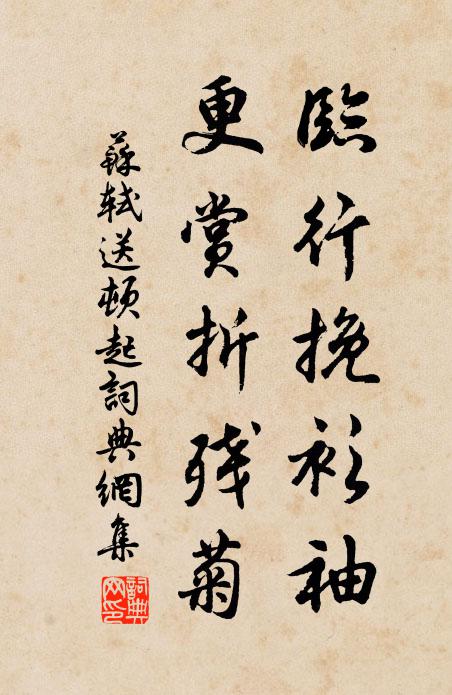 臨行挽衫袖
更賞折残菊
蘇軾送頓起詞典網集
詞典網印